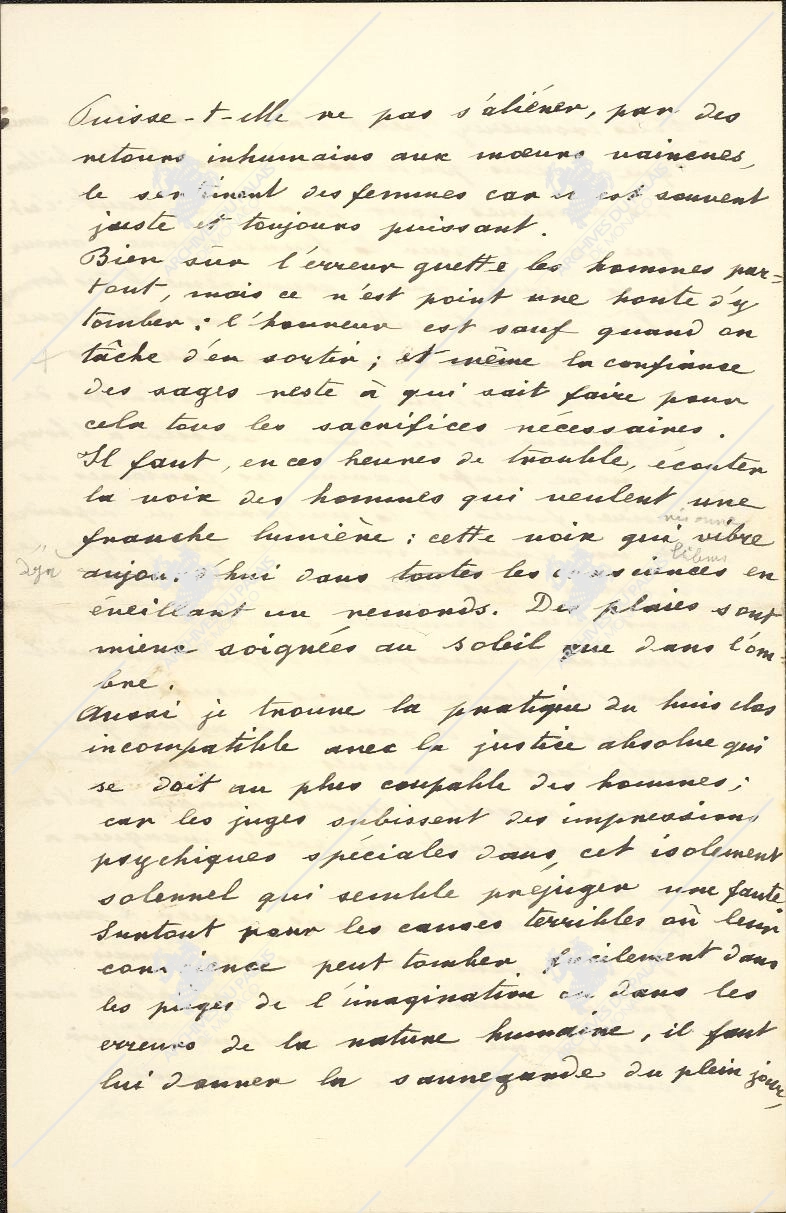 Puisse-t-elle ne pas s'aliéner, par des
retours inhumains aux mœurs vaincues,
le sentiment des femmes car il est souvent
juste et toujours puissant.
Bien sûr l'erreur guette les hommes par-
tout, mais ce n'est point une honte d'y
tomber : l'honneur est sauf quand on
tâche d'en sortir ; et même la confiance
des sages reste à qui sait faire pour
cela tous les sacrifices nécessaires.
Il faut, en ces heures de trouble, écouter
la voix des hommes qui veulent une
franche lumière : cette voix qui vibre
déjà
libres
aujourd'hui dans toutes les consciences en
éveillant un remords. Des plaies sont
mieux soignées au soleil que dans l'om-
bre.
Aussi je trouve la pratique du huis clos
incompatible avec la justice absolue qui
se doit au plus coupable des hommes ;
car les juges subissent des impressions
psychiques spéciales dans cet isolement
solennel qui semble préjuger une faute
Surtout pour les causes terribles où leur
conscience peut tomber facilement dans
les pièges de l'imagination ou dans les
erreurs de la nature humaine, il faut
lui donner la sauvegarde du plein jour,